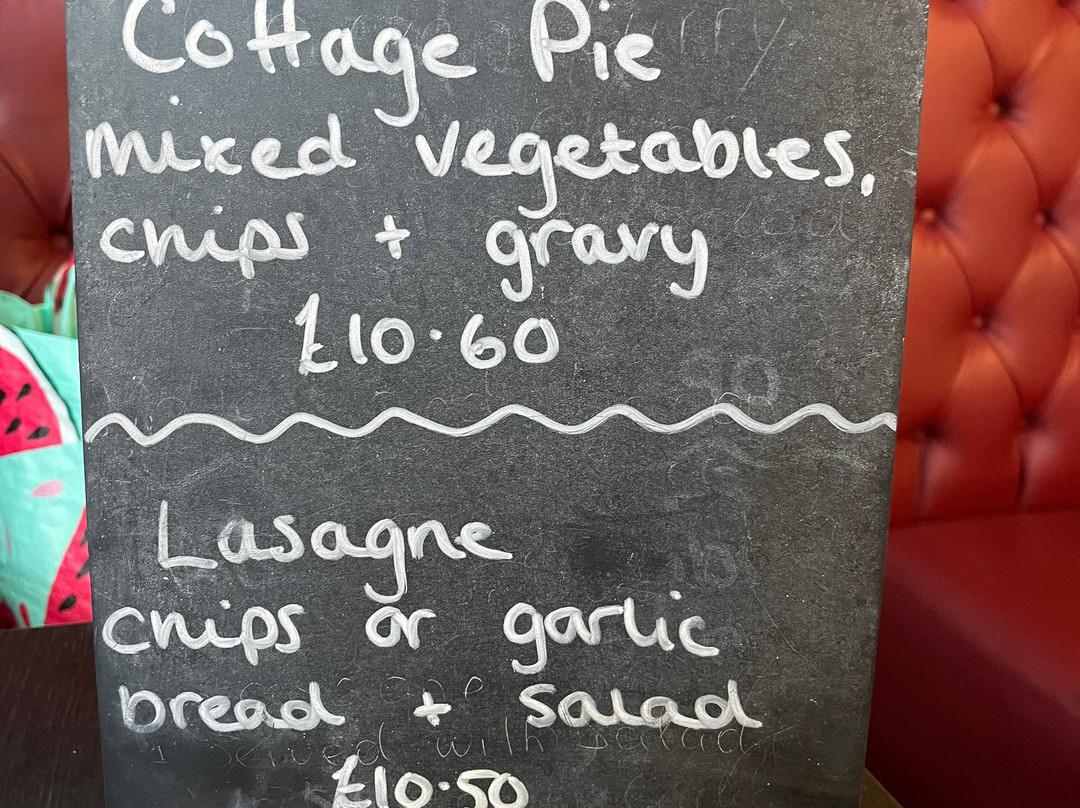 Cottage Pie
mixed vegetables,
chips + gravy
£10.60
Lasagne
chips or garlic
bread + salad
£10.50